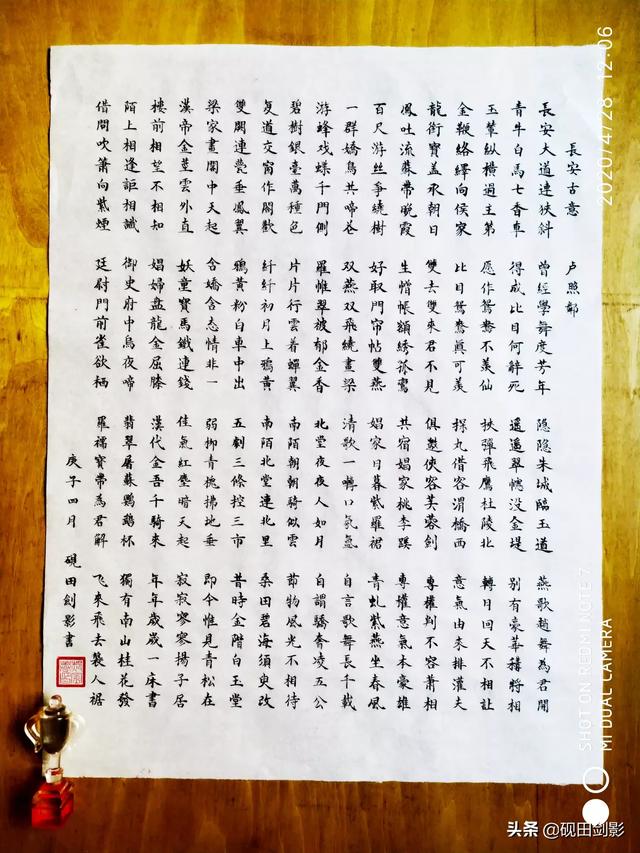 長安古意
卢照邻
長安大道連狹斜
青牛白馬七香車
玉輦縱横過主第
金鞭絡繹向侯家
龍銜寶盖承朝日
鳳吐流蘇帶晚霞
百尺游丝争繞樹
一群嬌鳥共啼花
游蜂戏蝶千門側
碧樹銀臺萬種色
复道交窗作閤歡
雙闕連甍垂鳳翼
梁家畫閣中天起
漢帝金莖雲外直
樓前相望不相知
陌上相逢詎相識
借問吹簫向紫煙
曾經學舞度芳年
得成比目何辭死
愿作鴛鴦不羡仙
比目鴛鴦真可羡
雙去雙來君不見
生憎帳額绣孤鸞
好取門帘帖雙燕
双燕双飛繞畫梁
羅帷翠被郁金香
片片行雲着蟬翼
纤纤初月上鴉黄
鴉黄粉白車中出
含嬌含态情非一
妖童寶馬鐵連錢
娼婦盘龍金屈膝
御史府中烏夜啼
廷尉門前雀欲栖
隐隐朱城臨玉道
遥遥翠幰没金堤
挾彈飛鷹杜陵北
探丸借客渭橋西
俱邀侠客芙蓉劍
共宿娼家桃李蹊
娼家日暮紫羅裙
清歌一囀口氛氲
北堂夜夜人如月
南陌朝朝騎似雲
南陌北堂連北里
五劇三條控三市
弱柳青槐拂地垂
佳氣红塵暗天起
漢代金吾千騎來
翡翠屠蘇鸚鵡杯
羅襦寶帶為君解
燕歌趙舞為君開
别有豪華稱將相
轉日回天不相讓
意氣由来排灌夫
專權判不容蕭相
專權意氣本豪雄
青虬紫燕坐春風
自言歌舞長千載
自謂驕奢凌五公
節物風光不相待
桑田碧海須臾改
昔時金階白玉堂
即今惟見青松在
寂寂寥寥揚子居
年年歲歲一床書
獨有南山桂花發
飛來飛去襲人裾
庚子四月
硯田劍影書
2020/4/28 12:06
SHOT ON REDMI NOTE 7
MI DUAL CAMERA
头条 @砚田剑影